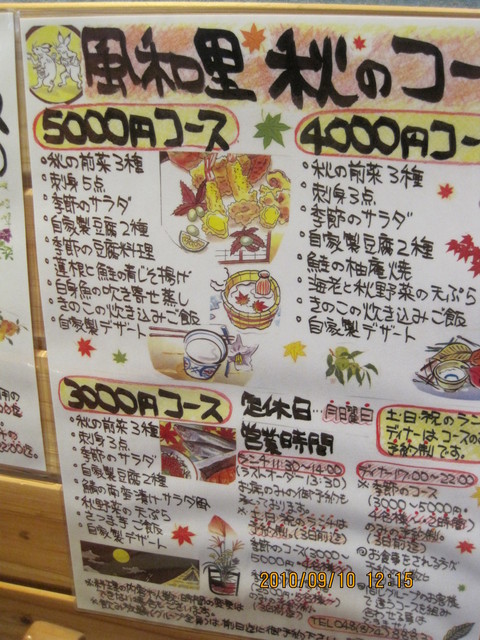 風和里 秋のコー
5000円コース
・秋の前菜3種
・刺身5点
・季節のサラダ
・自家製豆腐2種
・季節の豆腐料理
・蓮根と鮭の青じそ揚げ
・白身魚の吹き寄せ蒸し
・きのこの炊き込みご飯
・自家製デザート
4000円コー
・秋の前菜3種
・刺身3点
・季節のサラダ
・自家製豆腐2種
・鮭の柚庵焼
・海老と秋野菜の天ぷら
・きのこの炊き込みご飯
・自家製デザート
3000円コース
・秋の前菜3種
・刺身3点
・季節のサラダ
・自家製豆腐2種
・鯵の南蛮漬けサラダ風
・秋野菜の天ぷら
・さつまいもご飯
・自家製デザート
定休日…月曜日
営業時間
ランチ11:30〜14:00
(ラストオーダー13:30)
お休みの御予約も
土・日・祝のラン
ディナーはコースの
予約制です。
ディナー17:00〜22:00
※季節のコース
(3000〜5000円。
4名様〜・2時間)
のみ予約制。
(3日前迄)
季節のコース(3000〜
2010/09/10 12:15